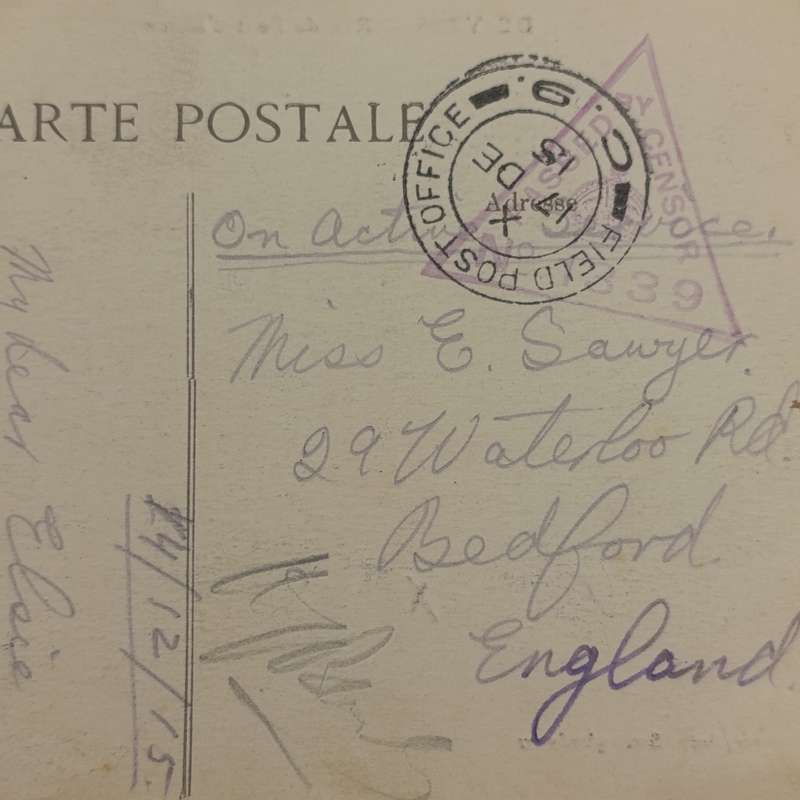 ARTE POSTALE
Adresse
On Active Service.
Miss E. Sawyer.
29 Waterloo Rd.
Bedford
England.
FIELD POST OFFICE
C.9.
X
17 DE
15
PASSED BY CENSOR
No 1339
14/12/15.
My Dear Elsie